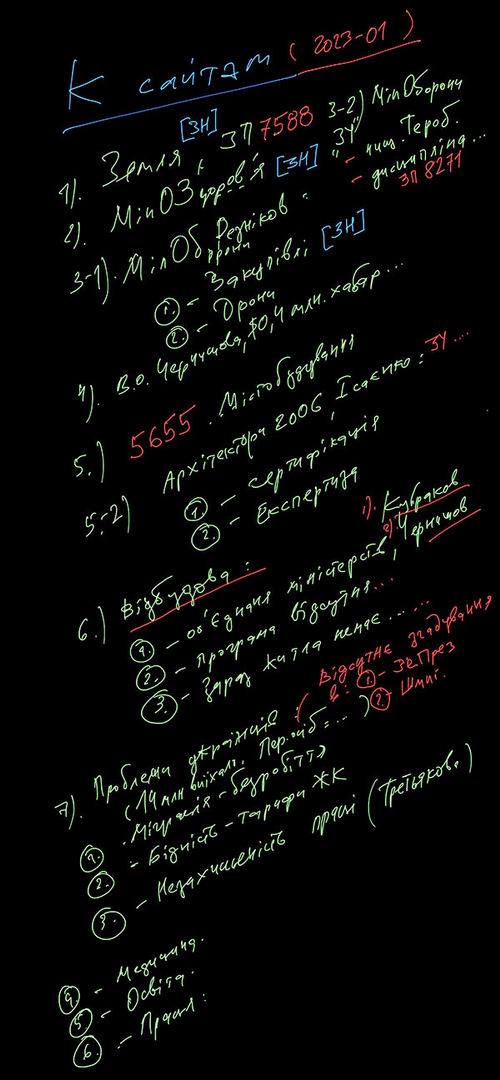 К сайтам (2023-01)
[ЗН]
1). Земля: ЗП 7588 3-2) МінОборони
2). МінОЗдоров'я [ЗН] "ЗУ" - нищ. Тероб.
- дисципліна...
ЗП 8271
3-1). МінОборони Резніков:
1. - Закупівлі [ЗН]
2. - Дрони
4). В.О. Чернишова, $0,4 млн. хабар...
5.) 5655. Містобудування
5.-2) Архітектори 2006, Ісаєнко: ЗУ....
1 - Сертифікація
2. - Експертиза
6.) Відбудова: 1). Кубраков
2). Чернишов
1. - об'єднання міністерств,
2. - програма відсутня...
3. - зараз житла немає......
7). Проблеми українців: (Відсутнє згадування
в: 1 - ЗЕ През
2. Шмиг.
(14 млн виїхали. Пер.осіб=...)
1. Міграція - безробіття
2. - Бідність - тарифи ЖК
3. - Незахищеність праці (Третьякова)
4 - Медицина.
5 - Освіта.
6. - Праця: